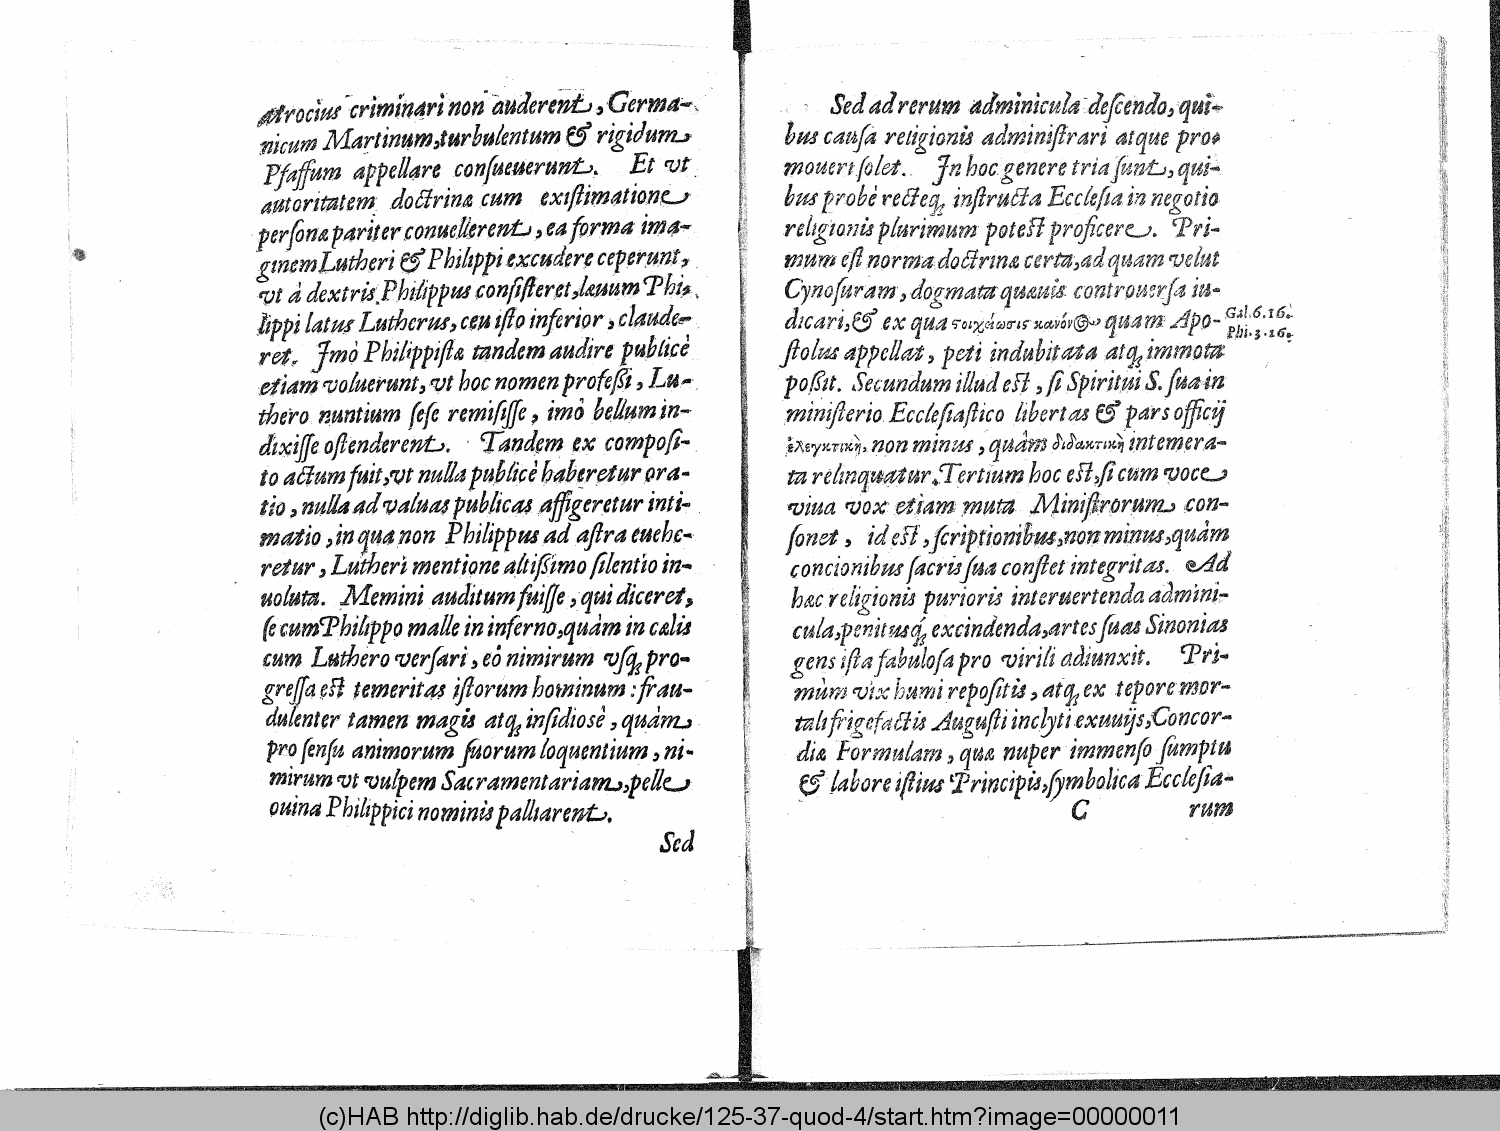 atrocius criminari non auderent, Germa-
nicum Martinum, turbulentum & rigidum
Pfaffum appellare conſueuerunt. Et vt
autoritatem doctrinæ cum exiſtimatione
perſonæ pariter conuellerent, ea forma ima-
ginem Lutheri & Philippi excudere ceperunt,
vt à dextris Philippus conſiſteret, læuum Phi-
lippi latus Lutherus, ceu iſto inferior, claude-
ret. Imò Philippiſtæ tandem audire publicè
etiam voluerunt, vt hoc nomen profeßi, Lu-
thero nuntium ſeſe remiſiſſe, imò bellum in-
dixiſſe oſtenderent. Tandem ex compoſi-
to actum fuit, vt nulla publicè haberetur ora-
tio, nulla ad valuas publicas affigeretur inti-
matio, in qua non Philippus ad aſtra euehe-
retur, Lutheri mentione altißimo ſilentio in-
uoluta. Memini auditum fuiſſe, qui diceret,
ſe cum Philippo malle in inferno, quàm in cælis
cum Luthero verſari, eò nimirum vſq; pro-
greſſa est temeritas iſtorum hominum: frau-
dulenter tamen magis atq; inſidiosè, quàm
pro ſenſu animorum ſuorum loquentium, ni-
mirum vt vulpem Sacramentariam, pelle
ouina Philippici nominis palliarent.
Sed
Sed ad rerum adminicula deſcendo, qui-
bus cauſa religionis adminiſtrari atque pro-
moueri ſolet. In hoc genere tria ſunt, qui-
bus probè recteq; inſtructa Eccleſia in negotio
religionis plurimum potest proficere. Pri-
mum eſt norma doctrinæ certa, ad quam velut
Cynoſuram, dogmata quæuis controuerſa iu-
dicari, & ex qua ςοιχείωσις κανόν⊙ quam Apo-
Gal. 6. 16.
Phi. 3. 16.
ſtolus appellat, peti indubitata atq; immota
poßit. Secundum illud est, ſi Spiritui S. ſua in
miniſterio Eccleſiaſtico libertas & pars officij
ἐλεγκτικὴ, non minus, quàm διδακτικὴ intemera-
ta relinquatur. Tertium hoc est, ſi cum voce
viua vox etiam muta Miniſtrorum con-
ſonet, id est, ſcriptionibus, non minus, quàm
concionibus ſacris ſua conſtet integritas. Ad
hæc religionis purioris interuertenda admini-
cula, penitusq́; excindenda, artes ſuas Sinonias
gens iſta fabuloſa pro virili adiunxit. Pri-
mùm vix humi repoſitis, atq; ex tepore mor-
tali frigefactis Auguſti inclyti exuuijs, Concor-
diæ Formulam, quæ nuper immenſo ſumptu
& labore iſtius Principis, ſymbolica Eccleſia-
C rum
(c)HAB http://diglib.hab.de/drucke/125-37-quod-4/start.htm?image=00000011